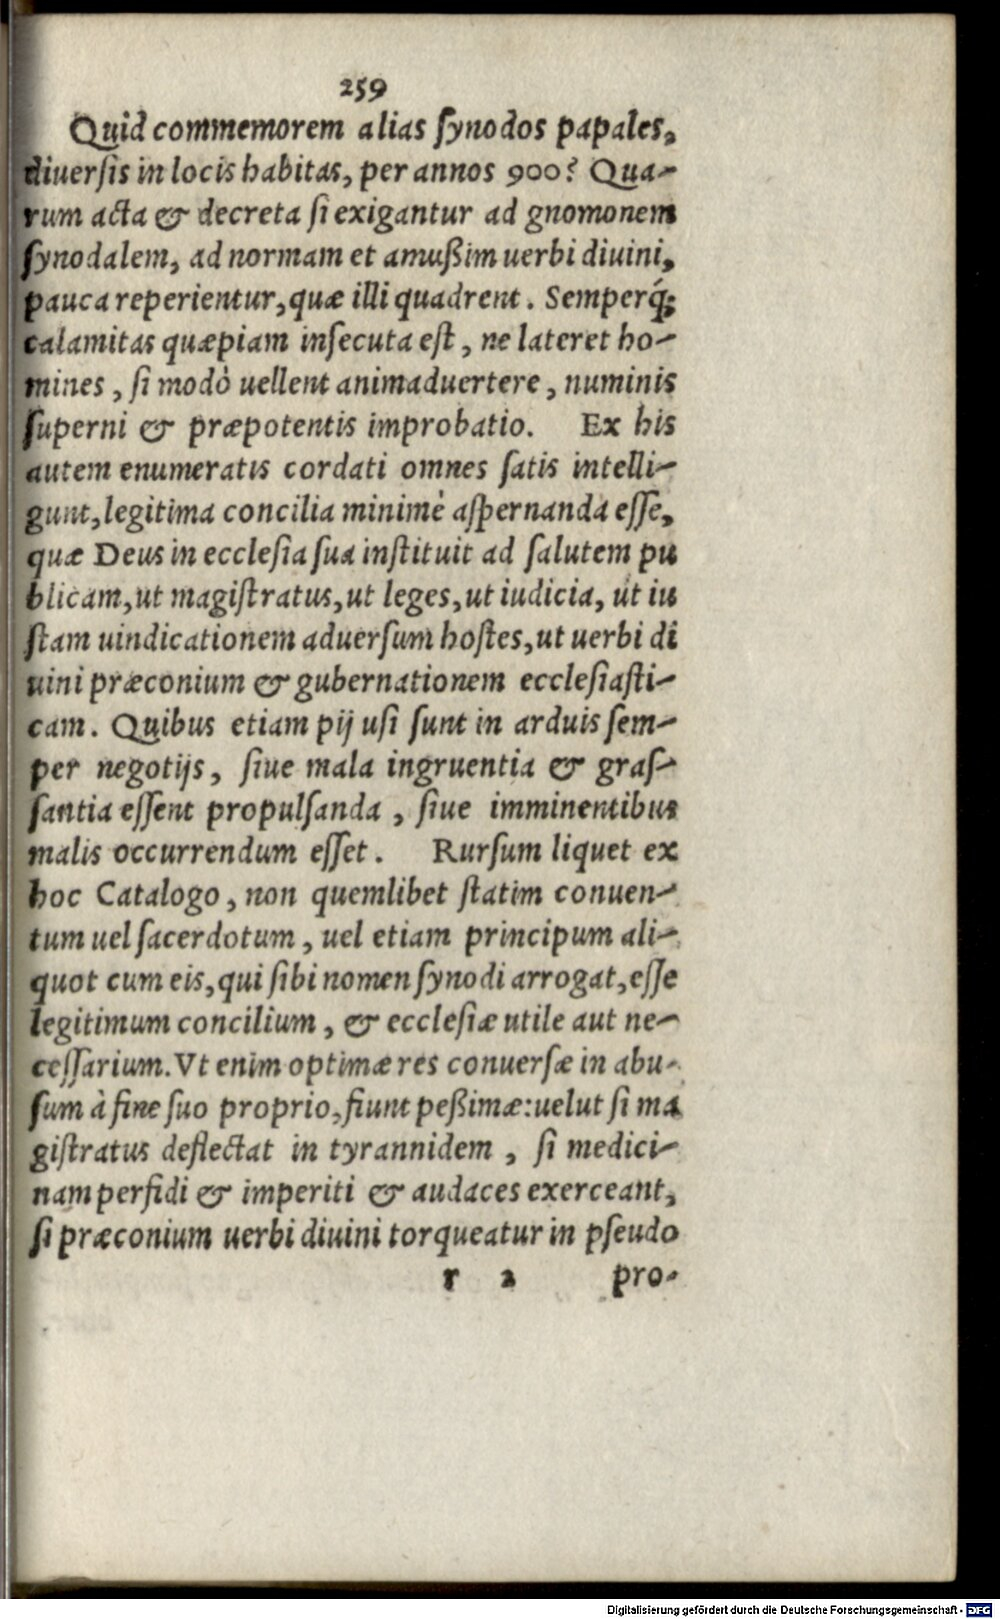 259
Quid commemorem alias ſynodos papales,
diuerſis in locis habitas, per annos 900? Qua-
rum acta & decreta ſi exigantur ad gnomonem
ſynodalem, ad normam et amußim uerbi diuini,
pauca reperientur, quæ illi quadrent. Semperq́;
calamitas quæpiam inſecuta eſt, ne lateret ho-
mines, ſi modò uellent animaduertere, numinis
ſuperni & præpotentis improbatio. Ex his
autem enumeratis cordati omnes ſatis intelli-
gunt, legitima concilia minimè aſpernanda eſſe,
quæ Deus in eccleſia ſua inſtituit ad ſalutem pu
blicam, ut magiſtratus, ut leges, ut iudicia, ut iu
ſtam uindicationem aduerſum hoſtes, ut uerbi di
uini præconium & gubernationem eccleſiaſti-
cam. Quibus etiam pij uſi ſunt in arduis ſem-
per negotijs, ſiue mala ingruentia & graſ-
ſantia eſſent propulſanda, ſiue imminentibus
malis occurrendum eſſet. Rurſum liquet ex
hoc Catalogo, non quemlibet ſtatim conuen-
tum uel ſacerdotum, uel etiam principum ali-
quot cum eis, qui ſibi nomen ſynodi arrogat, eſſe
legitimum concilium, & eccleſiæ utile aut ne-
ceſſarium. Vt enim optimæ res conuerſæ in abu-
ſum à fine ſuo proprio, fiunt peßimæ: uelut ſi ma
giſtratus deflectat in tyrannidem, ſi medici-
nam perfidi & imperiti & audaces exerceant,
ſi præconium uerbi diuini torqueatur in pſeudo
r 2 pro-
Digitalisierung gefördert durch die Deutsche Forschungsgemeinschaft - DFG